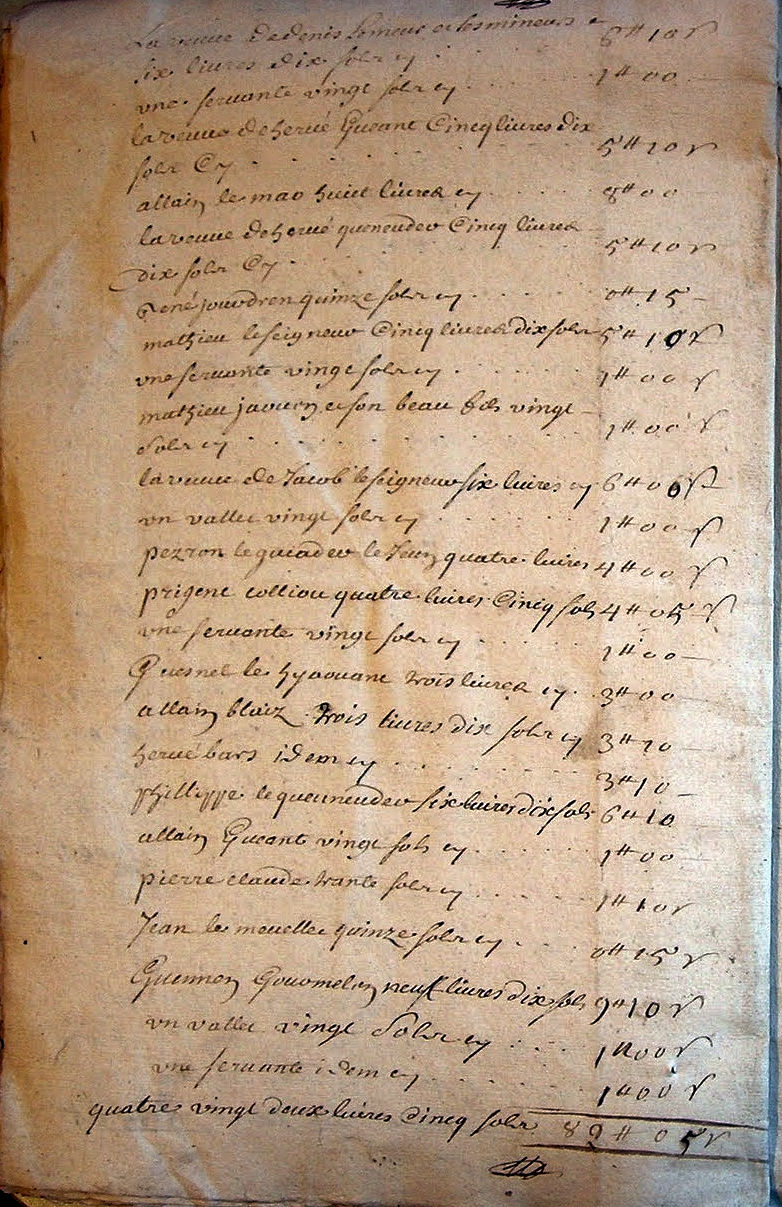 La veuve de denis Lemeur et les mineurs
six livres dix sols cy 6# 10 s
une servante vingt sols cy 1# 00
la veuve de hervé Gueant Cincq livres dix
sols Cy 5# 10 s
allain le mao huict livres cy 8# 00
la veuve de hervé queneudec Cincq livres
dix sols Cy 5# 10 s
René jouvdren quinze sols cy 0# 15
mathieu le seigneur Cincq livres dix sols 5# 10 s
une servante vingt sols cy 1# 00 s
mathieu jaouen et son beau fils vingt
sols cy 1# 00 s
la veuve de Jacob le seigneur six livres cy 6# 00 s
un vallet vingt sols cy 1# 00 s
pezron le queadec le Jeun quatre livres 4# 00 s
prigent colliou quatre livres Cincq sols 4# 05 s
une servante vingt sols cy 1# 00
Guesnel le hyaouanc trois livres cy 3# 00
allain bloaz trois livres dix sols cy 3# 10
hervé bars idem cy 3# 10
phillippe le queuneudec six livres dix sols 6# 10
allain Gueant vingt sols cy 1# 00
pierre claude trante sols cy 1# 10 s
Jean le mouellec quinze sols cy 0# 15 s
Guennen Gouvomelen neuff livres dix sols 9# 10 s
un vallet vingt sols cy 1# 00 s
une servante idem cy 1# 00 s
quatre vingt deux livres Cincq sols 82# 05 s